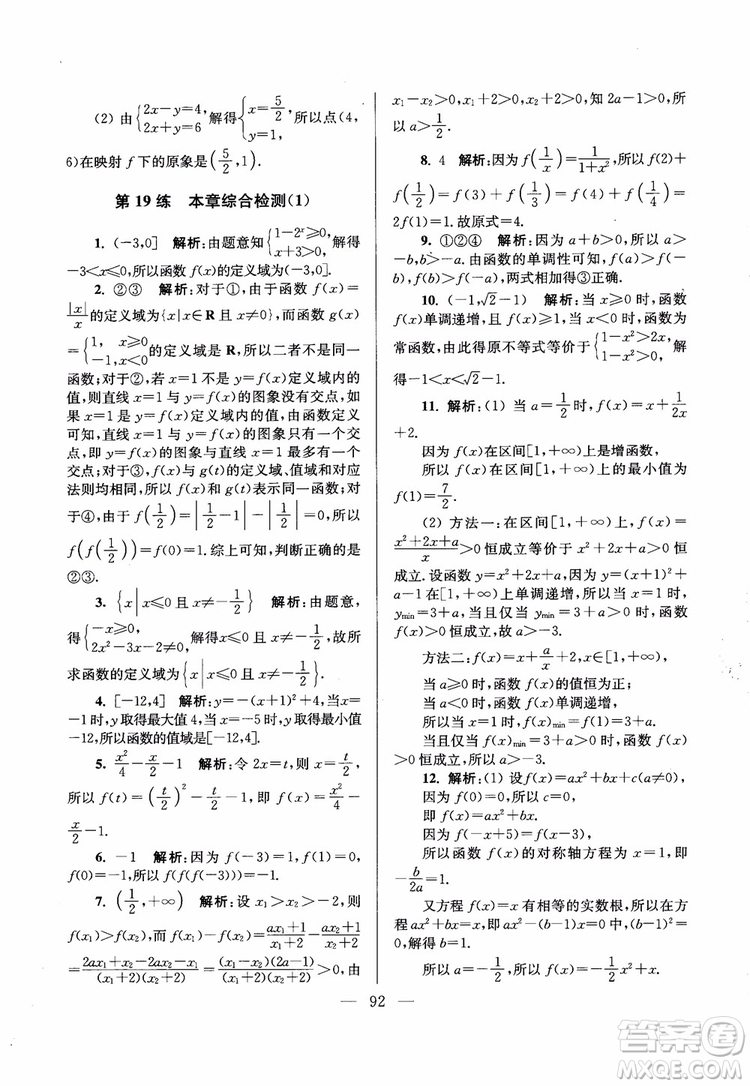 (2) 由{2x-y=4, x+y=6 解得{x=5/2, y=1. 所以点(4,
6)在映射 f 下的原象是(5/2,1).
第 19 练　本章综合检测(1)
1. (-3,0]　解析:由题意知{1-2ˣ≥0, x+3>0, 解得
-3<x≤0,所以函数 f(x)的定义域为(-3,0].
2. ②③　解析:对于①,由于函数 f(x)=
|x|/x 的定义域为{x|x∈R 且 x≠0},而函数 g(x)
={1, x≥0 -1, x<0 的定义域是 R,所以二者不是同一
函数;对于②,若 x=1 不是 y=f(x)定义域内的
值,则直线 x=1 与 y=f(x)的图象没有交点,如
果 x=1 是 y=f(x)定义域内的值,由函数定义
可知,直线 x=1 与 y=f(x)的图象只有一个交
点,即 y=f(x)的图象与直线 x=1 最多有一个
交点;对于③,f(x)与 g(t)的定义域、值域和对应
法则均相同,所以 f(x)和 g(t)表示同一函数;对
于④,由于 f(1/2)=|1/2-1|-|1/2|=0,所以
f(f(1/2))=f(0)=1.综上可知,判断正确的是
②③.
3. {x|x≤0 且 x≠-1/2}　解析:由题意,
得{-x≥0, 2x²-3x-2≠0, 解得 x≤0 且 x≠-1/2,故所
求函数的定义域为{x|x≤0 且 x≠-1/2}.
4. [-12,4]　解析:y=-(x+1)²+4,当 x=
-1 时,y 取得最大值 4,当 x=-5 时,y 取得最小值
-12,所以函数的值域是[-12,4].
5. x²/4-x/2-1　解析:令 2x=t,则 x=t/2,
所以 f(t)=(t/2)²-t/2-1,即 f(x)=x²/4-
x/2-1.
6. -1　解析:因为 f(-3)=1,f(1)=0,
f(0)=-1,所以 f(f(f(-3)))=-1.
7. (1/2,+∞)　解析:设 x₁>x₂>-2,则
f(x₁)>f(x₂),而 f(x₁)-f(x₂)=(ax₁+1)/(x₁+2)-(ax₂+1)/(x₂+2)
=(2ax₁+x₂-2ax₂-x₁)/((x₁+2)(x₂+2))=((x₁-x₂)(2a-1))/((x₁+2)(x₂+2))>0,由
x₁-x₂>0,x₁+2>0,x₂+2>0,知 2a-1>0,所
以 a>1/2.
8. 4　解析:因为 f(1/x)=1/(1+x²),所以 f(2)+
f(1/2)+f(3)+f(1/3)+f(4)+f(1/4)=3,又
2f(1)=1.故原式=4.
9. ①②④　解析:因为 a+b>0,所以 a>
-b,b>-a.由函数的单调性可知,f(a)>f(-b),
f(b)>f(-a),两式相加得③正确.
10. (-1,√2-1)　解析:当 x≥0 时,函数
f(x)单调递增,且 f(x)≥1,当 x<0 时,函数为
常函数,由此得原不等式等价于{1-x²>0, 1-x²>2x, 解
得-1<x<√2-1.
11. 解析:(1) 当 a=1/2 时,f(x)=x+1/2x
+2.
因为 f(x)在区间[1,+∞)上是增函数,
所以 f(x)在区间[1,+∞)上的最小值为
f(1)=7/2.
(2) 方法一:在区间[1,+∞)上,f(x)=
(x²+2x+a)/x>0 恒成立等价于 x²+2x+a>0 恒
成立.设函数 y=x²+2x+a,x∈[1,+∞),
y=(x+1)²+a-1 单调递增,所以当 x=1 时,
yₘᵢₙ=3+a,当且仅当 yₘᵢₙ=3+a>0 时,函数
f(x)>0 恒成立,故 a>-3.
方法二:f(x)=x+a/x+2,x∈[1,+∞),
当 a≥0 时,函数 f(x)的值恒为正;
当 a<0 时,函数 f(x)单调递增,
所以当 x=1 时,f(x)ₘᵢₙ=3+a,
当函数 f(x)ₘᵢₙ=3+a>0 时,函数 f(x)>0
恒成立,故 a>-3.
12. 解析:(1) 设f(x)=ax²+bx+c(a≠0).
因为 f(0)=0,所以 c=0,
即 f(x)=ax²+bx.
因为 f(-x+5)=f(x-3),
所以函数 f(x)的对称轴方程为 x=1=
-b/2a.
又方程 f(x)=x 有相等的实数根,所以
方程 ax²+bx=x,即 ax²-(1-b)x=0,Δ=
0,解得 b=1.
所以 a=-1/2,所以 f(x)=-1/2x²+x.
— 92 —
答案圈